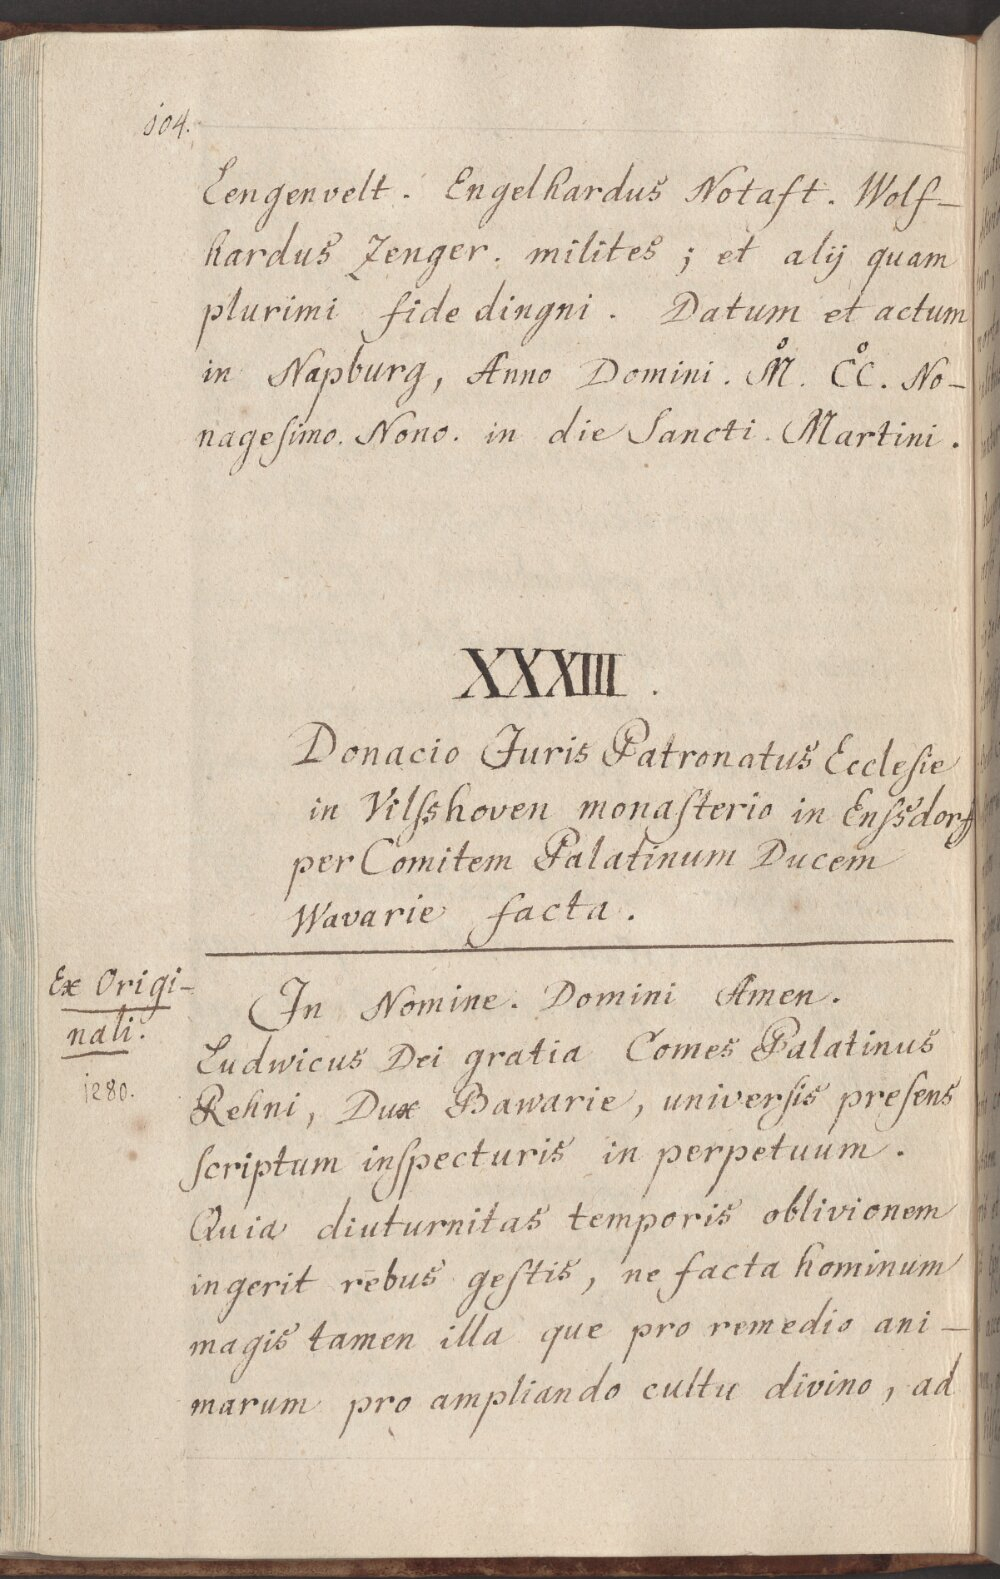 104.
Lengenvelt. Engelhardus Notaft. Wolf-
hardus Zenger. milites; et alij quam
plurimi fide dingni. Datum et actum
in Napburg, Anno Domini. M̊. CC̊. No-
nagesimo. Nono. in die Sancti. Martini.
XXXIII.
Donacio Juris Patronatus Ecclesie
in Vilsshoven monasterio in Enssdorf
per Comitem Palatinum Ducem
Wavarie facta.
Ex Origi-
nali.
1280.
In Nomine. Domini Amen.
Ludwicus Dei gratia Comes Palatinus
Rehni, Dux Bawarie, universis presens
scriptum inspecturis in perpetuum.
Quia diuturnitas temporis oblivionem
ingerit rebus gestis, ne facta hominum
magis tamen illa que pro remedio ani-
marum pro ampliando cultu divino, ad